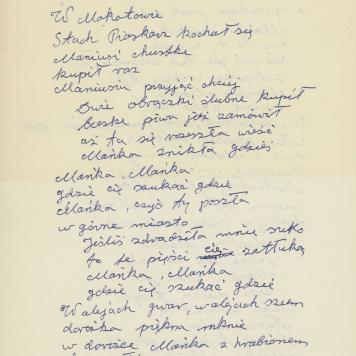 W Mokotowie
Stach Piaskarz kochał się
Maniusi chustkę
kupił raz
Maniusiu przyjąć chciej
Dwie obrączki ślubne kupił
Beskę piwa jeż zamówił
aż tu się rozeszła wieść
Mańka znikła gdzieś
Mańka, Mańka
gdzie cię szukać gdzie
Mańka, czyś ty poszła
w górne miasto
Jeśliś zdradziła mnie
to te pięści cię zatłuką
Mańka, Mańka
gdzie cię szukać gdzie
W alejach gwar, w alejach szum
dorożka piękna mknie
w dorożce Mańka z hrabionem